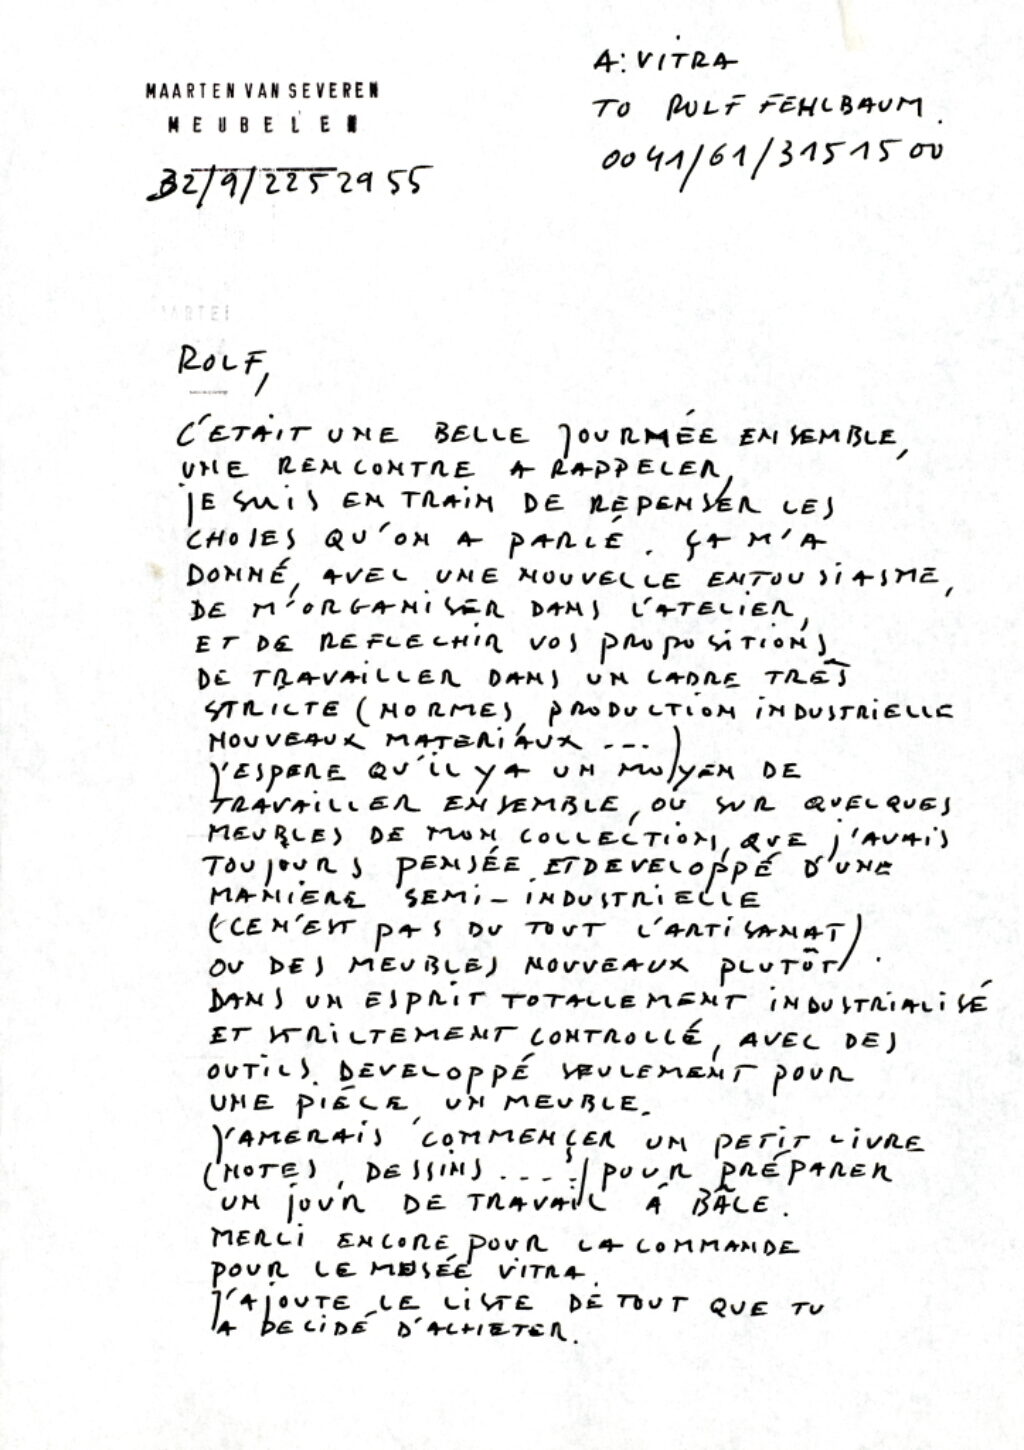 MAARTEN VAN SEVEREN
MEUBELEN
32/9/2252955
A: VITRA
TO ROLF FEHLBAUM.
0041/61/3151500
ROLF,
C'ETAIT UNE BELLE JOURNÉE ENSEMBLE,
UNE RENCONTRE A RAPPELER,
JE SUIS EN TRAIN DE REPENSER LES
CHOSES QU'ON A PARLÉ. ÇA M'A
DONNÉ, AVEC UNE NOUVELLE ENTOUSIASME,
DE M'ORGANISER DANS L'ATELIER,
ET DE REFLECHIR VOS PROPOSITIONS
DE TRAVAILLER DANS UN CADRE TRÊS
STRICTE (NORMES, PRODUCTION INDUSTRIELLE
NOUVEAUX MATERIAUX ---)
J'ESPERE QU'IL Y A UN MOYEN DE
TRAVAILLER ENSEMBLE, OU SUR QUELQUES
MEUBLES DE MON COLLECTION, QUE J'AVAIS
TOUJOURS PENSÉE ET DEVELOPPÉ D'UNE
MANIERE SEMI-INDUSTRIELLE
(CE N'EST PAS DU TOUT L'ARTISANAT)
OU DES MEUBLES NOUVEAUX PLUTÔT.
DANS UN ESPRIT TOTALLEMENT INDUSTRIALISÉ
ET STRICTEMENT CONTROLLÉ, AVEC DES
OUTILS DEVELOPPÉ SEULEMENT POUR
UNE PIÉCE, UN MEUBLE.
J'AMERAIS COMMENÇER UN PETIT LIVRE
(NOTES, DESSINS ----) POUR PRÉPARER
UN JOUR DE TRAVAIL Á BÂLE.
MERCI ENCORE POUR LA COMMANDE
POUR LE MUSÉE VITRA.
J'AJOUTE LE LISTE DE TOUT QUE TU
A DECIDÉ D'ACHETER.